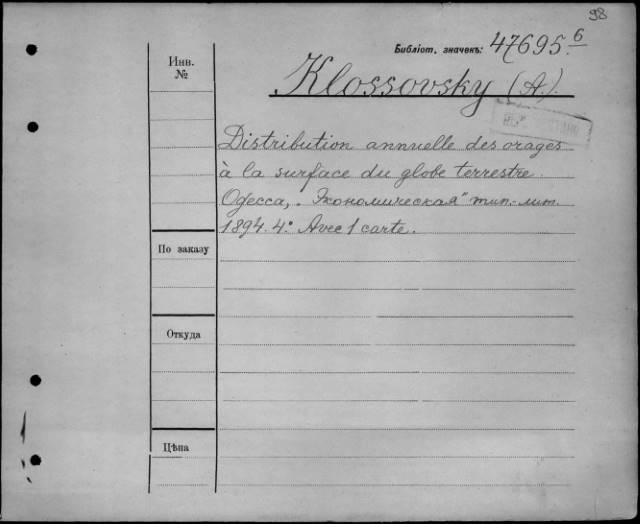 98
Библіот. значекъ: 47695 6
Инв.
№
Klossovsky (A).
Distribution annuelle des orages
à la surface du globe terrestre.
Одесса, „Экономическая" тип.-лит.
1894. 4º. Avec 1 carte.
По заказу
Откуда
Цѣна